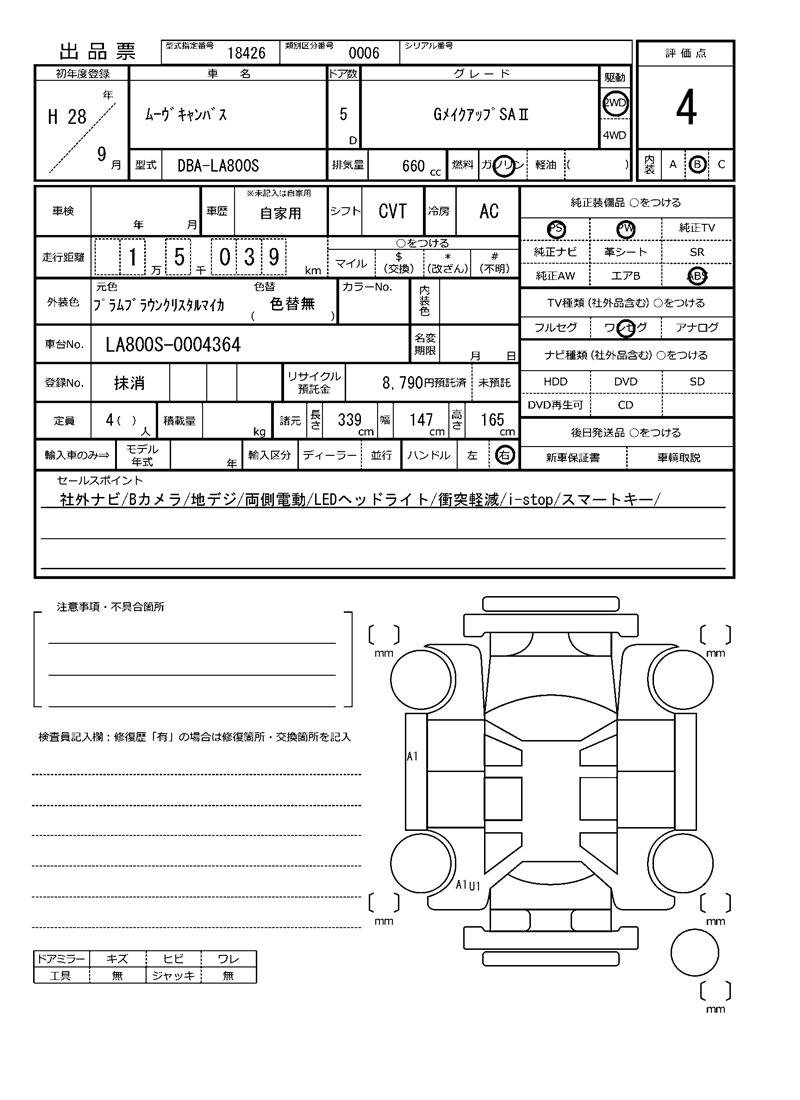 出品票 型式指定番号 18426 類別区分番号 0006 シリアル番号 評価点
初年度登録 車名 ドア数 グレード 駆動
H 28 年 9 月 ムーヴキャンバス 5 D GメイクアップSAⅡ 2WD 4WD 4
型式 DBA-LA800S 排気量 660 cc 燃料 ガソリン 軽油 ( ) 内装 A B C
車検 年 月 車歴 ※未記入は自家用 自家用 シフト CVT 冷房 AC 純正装備品 ○をつける
PS PW 純正TV
走行距離 1 万 5 千 0 3 9 km ○をつける 純正ナビ 革シート SR
マイル $ (交換) * (改ざん) # (不明) 純正AW エアB ABS
外装色 元色 プラムブラウンクリスタルマイカ 色替 ( 色替無 ) カラーNo. 内装色 TV種類(社外品含む)○をつける
フルセグ ワンセグ アナログ
車台No. LA800S-0004364 名変期限 月 日 ナビ種類(社外品含む)○をつける
登録No. 抹消 リサイクル預託金 8,790円預託済 未預託 HDD DVD SD
DVD再生可 CD
定員 4( ) 人 積載量 kg 諸元 長さ 339 cm 幅 147 cm 高さ 165 cm 後日発送品 ○をつける
輸入車のみ⇒ モデル年式 年 輸入区分 ディーラー 並行 ハンドル 左 右 新車保証書 車輌取説
セールスポイント
社外ナビ/Bカメラ/地デジ/両側電動/LEDヘッドライト/衝突軽減/i-stop/スマートキー/
注意事項・不具合箇所
mm mm
検査員記入欄:修復歴「有」の場合は修復箇所・交換箇所を記入
A1
A1 U1
mm mm
ドアミラー キズ ヒビ ワレ
工具 無 ジャッキ 無
mm